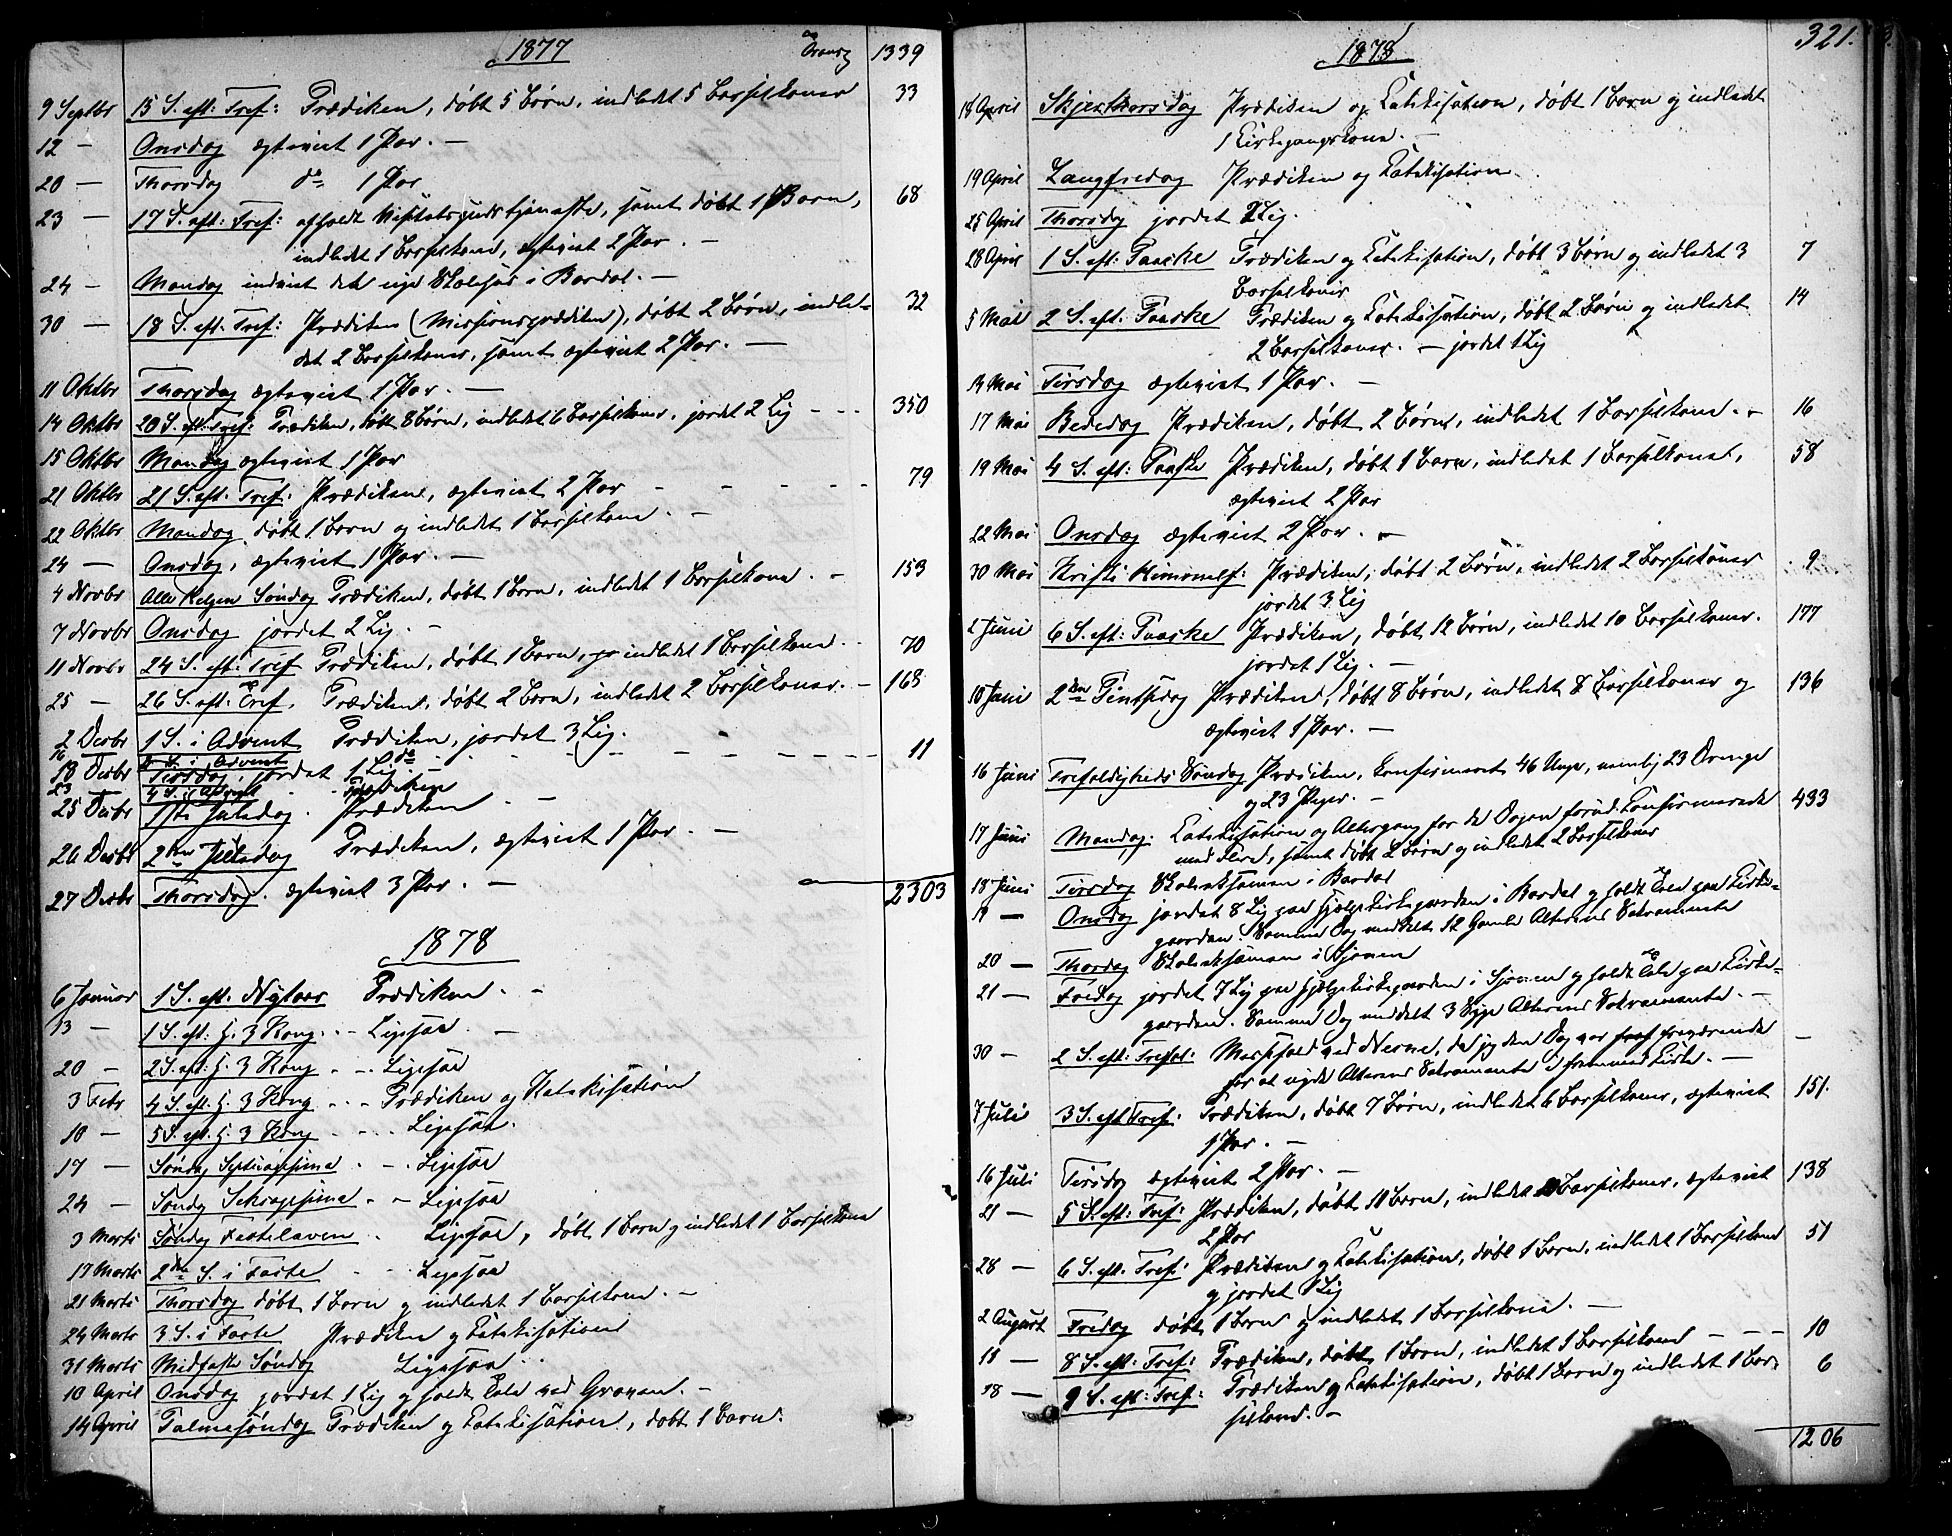 1877
1339
9 Septbr 15 S. eft: Tref: Prædiken, døbt 5 Børn, indledet 5 Barselkoner 33
12 — Onsdag ægteviet 1 Par. —
20 — Thorsdag do 1 Par
23 — 17 S. eft: Tref: afholdt Visitatsgudstjeneste, samt døbt 1 Barn, 68
indledet 1 Barselkone, ægteviet 2 Par. —
24 — Mandag indviet det nye Skolehus i Bardal. —
30 — 18 S. eft: Tref: Prædiken (Missionsprædiken), døbt 2 Børn, indle- 32
det 2 Barselkoner, samt ægteviet 2 Par. —
11 Oktbr Thorsdag ægteviet 1 Par. —
14 Oktbr 20 S. eft: Tref: Prædiken, døbt 8 Børn, indledet 6 Barselkoner, jordet 2 Lig - - - 350
15 Oktbr Mandag ægteviet 1 Par
21 Oktbr 21 S. eft: Tref: Prædiken, ægteviet 2 Par - - - - - 79
22 Oktbr Mandag døbt 1 Barn og indledet 1 Barselkone. —
24 — Onsdag, ægteviet 1 Par. —
4 Novbr Alle Helgen Søndag Prædiken, døbt 1 Barn, indledet 1 Barselkone. — 153
7 Novbr Onsdag jordet 2 Lig. —
11 Novbr 24 S. eft: Tref Prædiken, døbt 1 Barn, indledet 1 Barselkone. 70
25 — 26 S. eft: Tref. Prædiken, døbt 2 Børn, indledet 2 Barselkoner. — 168
2 Decbr 1 S. i Advent Prædiken, jordet 3 Lig.
16 S. i Advent do - - - - - 11
18 Decbr Tirsdag, jordet 1 Lig
23 4 S. i Advent Prædiken
25 Decbr 1ste Juledag. Prædiken —
26 Decbr 2den Juledag Prædiken, ægteviet 1 Par. —
27 Decbr Thorsdag. ægteviet 3 Par. — 2303
1878
6 Januar 1 S. eft. Nytaar Prædiken. —
13 — 1 S. eft: H. 3 Kong. - - Ligesaa. —
20 — 2 S. eft: H. 3 Kong - - Ligesaa
3 Febr 4 S. eft. H. 3 Kong - - - Prædiken og Katekisation
10 — 5 S. eft. H. 3 Kong - - - Ligesaa.
17 — Søndag Septuagesima - - Ligesaa
24 — Søndag Seksagesima - - Ligesaa
3 Marts Søndag Fastelaven - Ligesaa, døbt 1 Barn og indledet 1 Barselkone
17 Marts 2den S. i Faste - - Ligesaa
21 Marts Thorsdag døbt 1 Barn og indledet 1 Barselkone. —
24 Marts 3 S. i Faste Prædiken og Katekisation
31 Marts Midfaste Søndag Ligesaa
10 April Onsdag jordet 1 Lig og holdt Tale ved Graven. —
14 April Palmesøndag Prædiken og Katekisation, døbt 1 Barn.
1878
321.
18 April Skjærthorsdag Prædiken og Katekisation, døbt 1 Barn og indledet
1 Kirkegangskone. —
19 April Langfredag Prædiken og Katekisation
25 April Thorsdag jordet 2 Lig.
28 April 1 S. eft: Paaske Prædiken og Katekisation, døbt 3 Børn og indledet 3 7
Barselkoner
5 Mai 2 S. eft. Paaske Prædiken og Katekisation, døbt 2 Børn og indledet 14
2 Barselkoner. — jordet 1 Lig
14 Mai Tirsdag ægteviet 1 Par. —
17 Mai Bededag Prædiken, døbt 2 Børn, indledet 1 Barselkone. — 16
19 Mai 4 S. eft: Paaske Prædiken, døbt 1 Barn, indledet 1 Barselkone, 58
ægteviet 2 Par
22 Mai Onsdag ægteviet 2 Par. —
30 Mai Kristi Himmelf: Prædiken, døbt 2 Børn, indledet 2 Barselkoner 9
jordet 3 Lig
2 Juni 6 S. eft: Paaske Prædiken, døbt 12 Børn, indledet 10 Barselkoner. 177
jordet 1 Lig. —
10 Juni 2den Pintsedag Prædiken, døbt 8 Børn, indledet 8 Barselkoner og 136
ægteviet 1 Par. —
16 Juni Trefoldigheds Søndag Prædiken, konfirmeret 46 Unge, nemlig 23 Drenge
og 23 Piger. —
17 Juni Mandag. Katekisation og Altergang for de Dagen forud Konfirmerede 433
med Flere, samt døbt 2 Børn og indledet 2 Barselkoner
18 Juni Tirsdag Skoleeksamen i Bardal
19 — Onsdag jordet 8 Lig paa Hjælpekirkegaarden i Bardal og holdt Tale paa Kirke-
gaarden. Samme Dag meddelt 12 Gamle Alterens Sakramente
20 — Thorsdag Skoleeksamen i Sjonen
21 — Fredag jordet 7 Lig paa Hjælpekirkegaarden i Sjonen og holdt Tale paa Kirke-
gaarden. Samme Dag meddelt 3 Syge Alterens Sakramente. —
30 — 2 S. eft: Trefol: Messefald ved Nesne, da jeg den Dag var fraværende —
for at nyde Alterens Sakramente i fremmed Kirke. —
7 Juli 3 S. eft Tref: Prædiken, døbt 7 Børn, indledet 6 Barselkoner, ægteviet 151.
1 Par. —
16 Juli Tirsdag ægteviet 2 Par. —
21 — 5 S. eft: Tref: Prædiken, døbt 11 Børn, indledet Barselkoner, ægteviet 138
2 Par
28 — 6 S. eft. Tref: Prædiken og Katekisation, døbt 1 Barn, indledet 1 Barselkone 51
og jordet 1 Lig
2 August Fredag døbt 1 Barn og indledet 1 Barselkone. —
11 — 8 S. eft: Tref: Prædiken, døbt 1 Barn, indledet 1 Barselkone - - - 10
18 — 9 S. eft: Tref: Prædiken og Katekisation, døbt 1 Barn og indledet 1 Bar- 6
selkone. —
1206